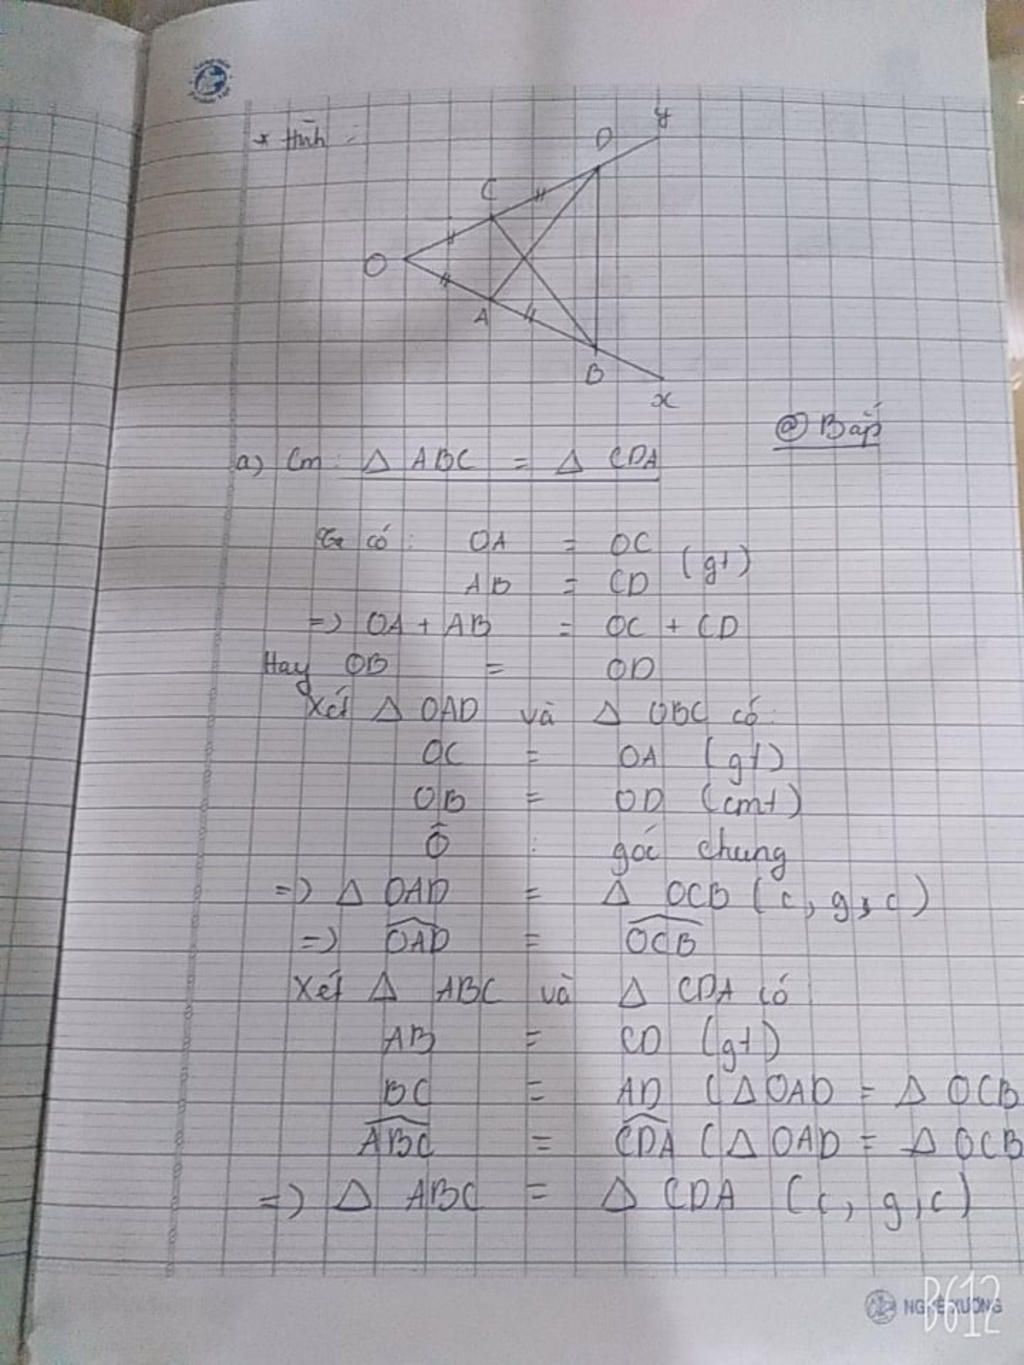 * Hình :
y
D
C
O
A
B
x
@ Bắp
a) Cm : Δ ABC = Δ CDA
Ta có : OA = OC
(gt)
AB = CD
=> OA + AB = OC + CD
Hay OB = OD
Xét Δ OAD và Δ OBC có :
OC = OA (gt)
OB = OD (cmt)
Ô : góc chung
=> Δ OAD = Δ OCB (c, g, c)
=> \widehat{OAD} = \widehat{OCB}
Xét Δ ABC và Δ CDA có
AB = CD (gt)
BC = AD (Δ OAD = Δ OCB
\widehat{ABC} = \widehat{CDA} (Δ OAD = Δ OCB
=> Δ ABC = Δ CDA (c, g, c)
B612